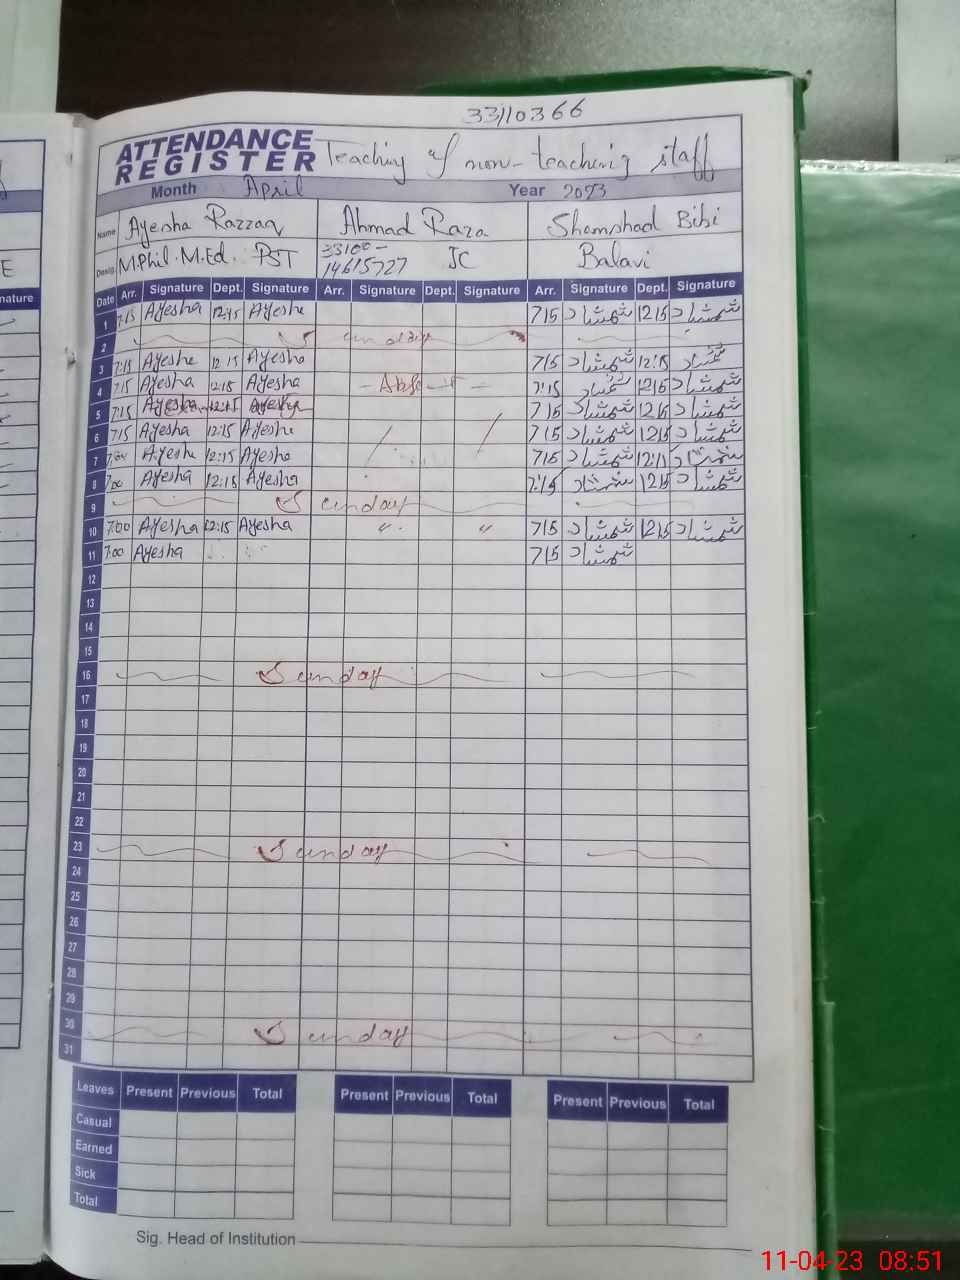 33110366
ATTENDANCE REGISTER Teaching & non-teaching staff
Month April Year 2023
Name Ayesha Razzaq Ahmad Raza Shamshad Bibi
Desig. M.Phil. M.Ed. PST 33100-14615727 JC Balavi
Date Arr. Signature Dept. Signature Arr. Signature Dept. Signature Arr. Signature Dept. Signature
1 7:15 Ayesha 12:45 Ayesha 715 شمشاد 1215 شمشاد
2 Sunday
3 7:15 Ayesha 12 15 Ayesha 715 شمشاد 12:15 شمشاد
4 7:15 Ayesha 12:15 Ayesha - Abse - 7:15 شمشاد 1215 شمشاد
5 7:15 Ayesha 12:15 Ayesha 715 شمشاد 1215 شمشاد
6 715 Ayesha 12:15 Ayesha 715 شمشاد 1215 شمشاد
7 7:00 Ayesha 12:15 Ayesha 715 شمشاد 12:15 شمشاد
8 7:00 Ayesha 12:15 Ayesha 7:15 شمشاد 1215 شمشاد
9 Sunday
10 7:00 Ayesha 12:15 Ayesha " " 715 شمشاد 1215 شمشاد
11 7:00 Ayesha 715 شمشاد
12
13
14
15
16 Sunday
17
18
19
20
21
22
23 Sunday
24
25
26
27
28
29
30 Sunday
31
Leaves Present Previous Total Present Previous Total Present Previous Total
Casual
Earned
Sick
Total
Sig. Head of Institution
11-04-23 08:51